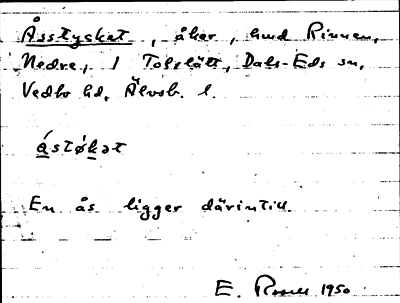 Åsstycket, åker, hmd Rinnen,
Nedre, 1 Tolslätt, Dals-Eds sn,
Vedbo hd, Älvsb. l.
ástøkət
En ås ligger därintill.
E. Rosell 1950